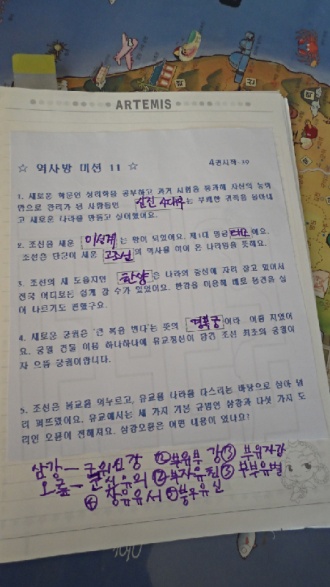 ARTEMIS
☆ 역사방 미션 11 ☆ 4권시작~10
1. 새로운 학문인 성리학을 공부하고 과거 시험을 통과해 자신의 능력
만으로 관리가 된 사람들인 신진 사대부는 부패한 권력을 몰아내
고 새로운 나라를 만들고 싶어했어요.
2. 조선을 세운 이성계는 왕이 되었어요. 제1대 임금 태조예요.
조선은 단군이 세운 고조선의 역사를 이어 온 나라임을 뜻해요.
3. 조선의 새 도읍지인 한양은 나라의 중심에 자리 잡고 있어서
전국 어디로든 쉽게 갈 수가 있었어요. 한강을 이용해 배로 물건을 실
어 나르기도 편했구요.
4. 새로운 궁궐은 '큰 복을 받다'는 뜻의 경복궁이라 이름 지었어
요. 궁궐 건물 이름 하나하나에 유교정신이 담긴 조선 최초의 궁궐이
자 으뜸 궁궐이랍니다.
5. 조선은 불교를 억누르고, 유교를 나라를 다스리는 바탕으로 삼아 널
리 퍼뜨렸어요. 유교에서는 세 가지 기본 규범인 삼강과 다섯 가지 도
리인 오륜이 전해져요. 삼강오륜은 어떤 내용이 있나요?
삼강 - 군위신강 ② 부위부강 ③ 부위자강
오륜 - 군신유의 ② 부자유친 ③ 부부유별
④ 장유유서 ⑤ 붕우유신